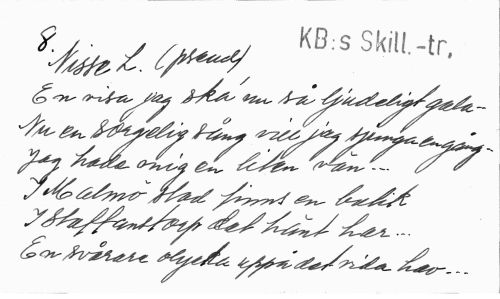 8.
KB:s Skill.-tr.
Nisse L. (pseud)
En visa jag ska' nu så ljudeligt gala-
Nu en sorgelig sång vill jag sjunga engång-
Jag hade mig en liten vän...
I Malmö stad finns en butik
I Staffanstorp det hänt har...
En svårare olycka uppå det vida hav...